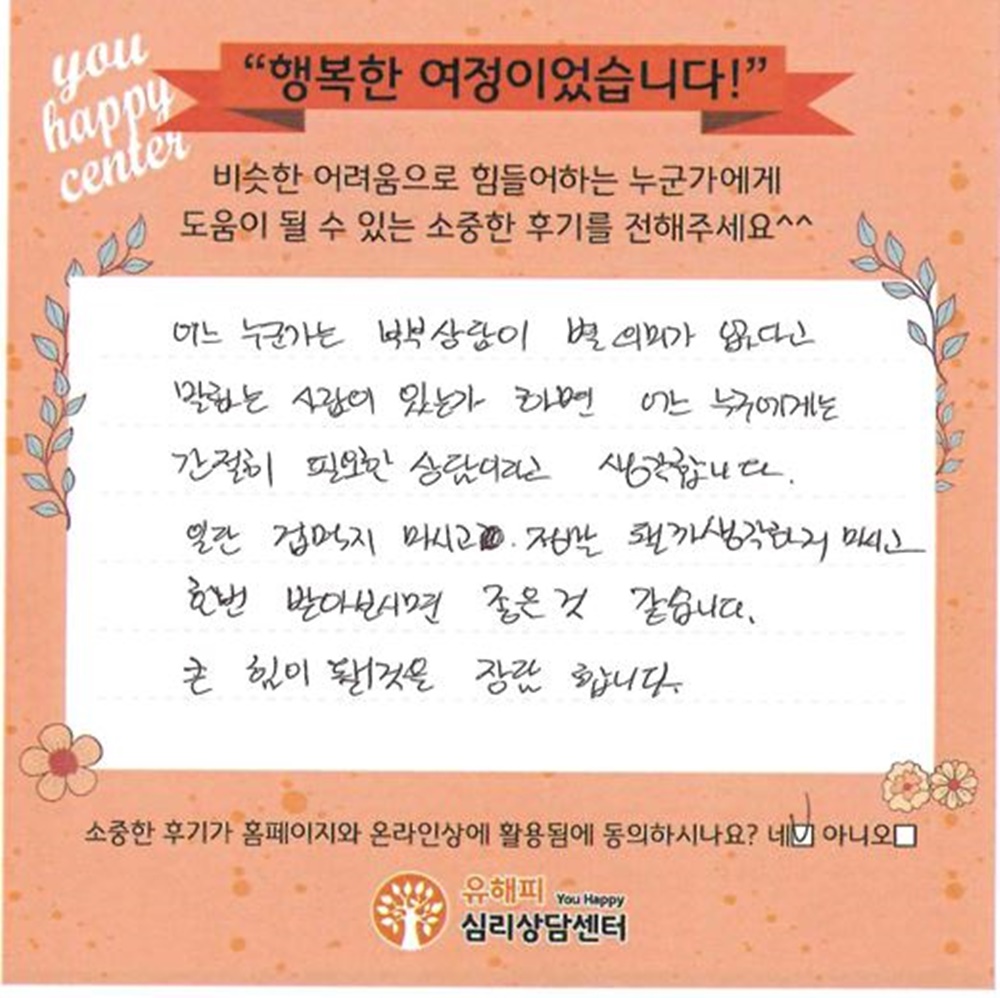 you
happy
center
“행복한 여정이었습니다!”
비슷한 어려움으로 힘들어하는 누군가에게
도움이 될 수 있는 소중한 후기를 전해주세요^^
어느 누군가는 부부상담이 별 의미가 없다고
말하는 사람이 있는가 하면 어느 누구에게는
간절히 필요한 상담이라고 생각합니다.
일단 겁먹지 마시고. 정말 될까생각하지 마시고
한번 받아보시면 좋은것 같습니다.
큰 힘이 될것을 장담 합니다.
소중한 후기가 홈페이지와 온라인상에 활용됨에 동의하시나요? 네☑ 아니오☐
유해피 You Happy
심리상담센터